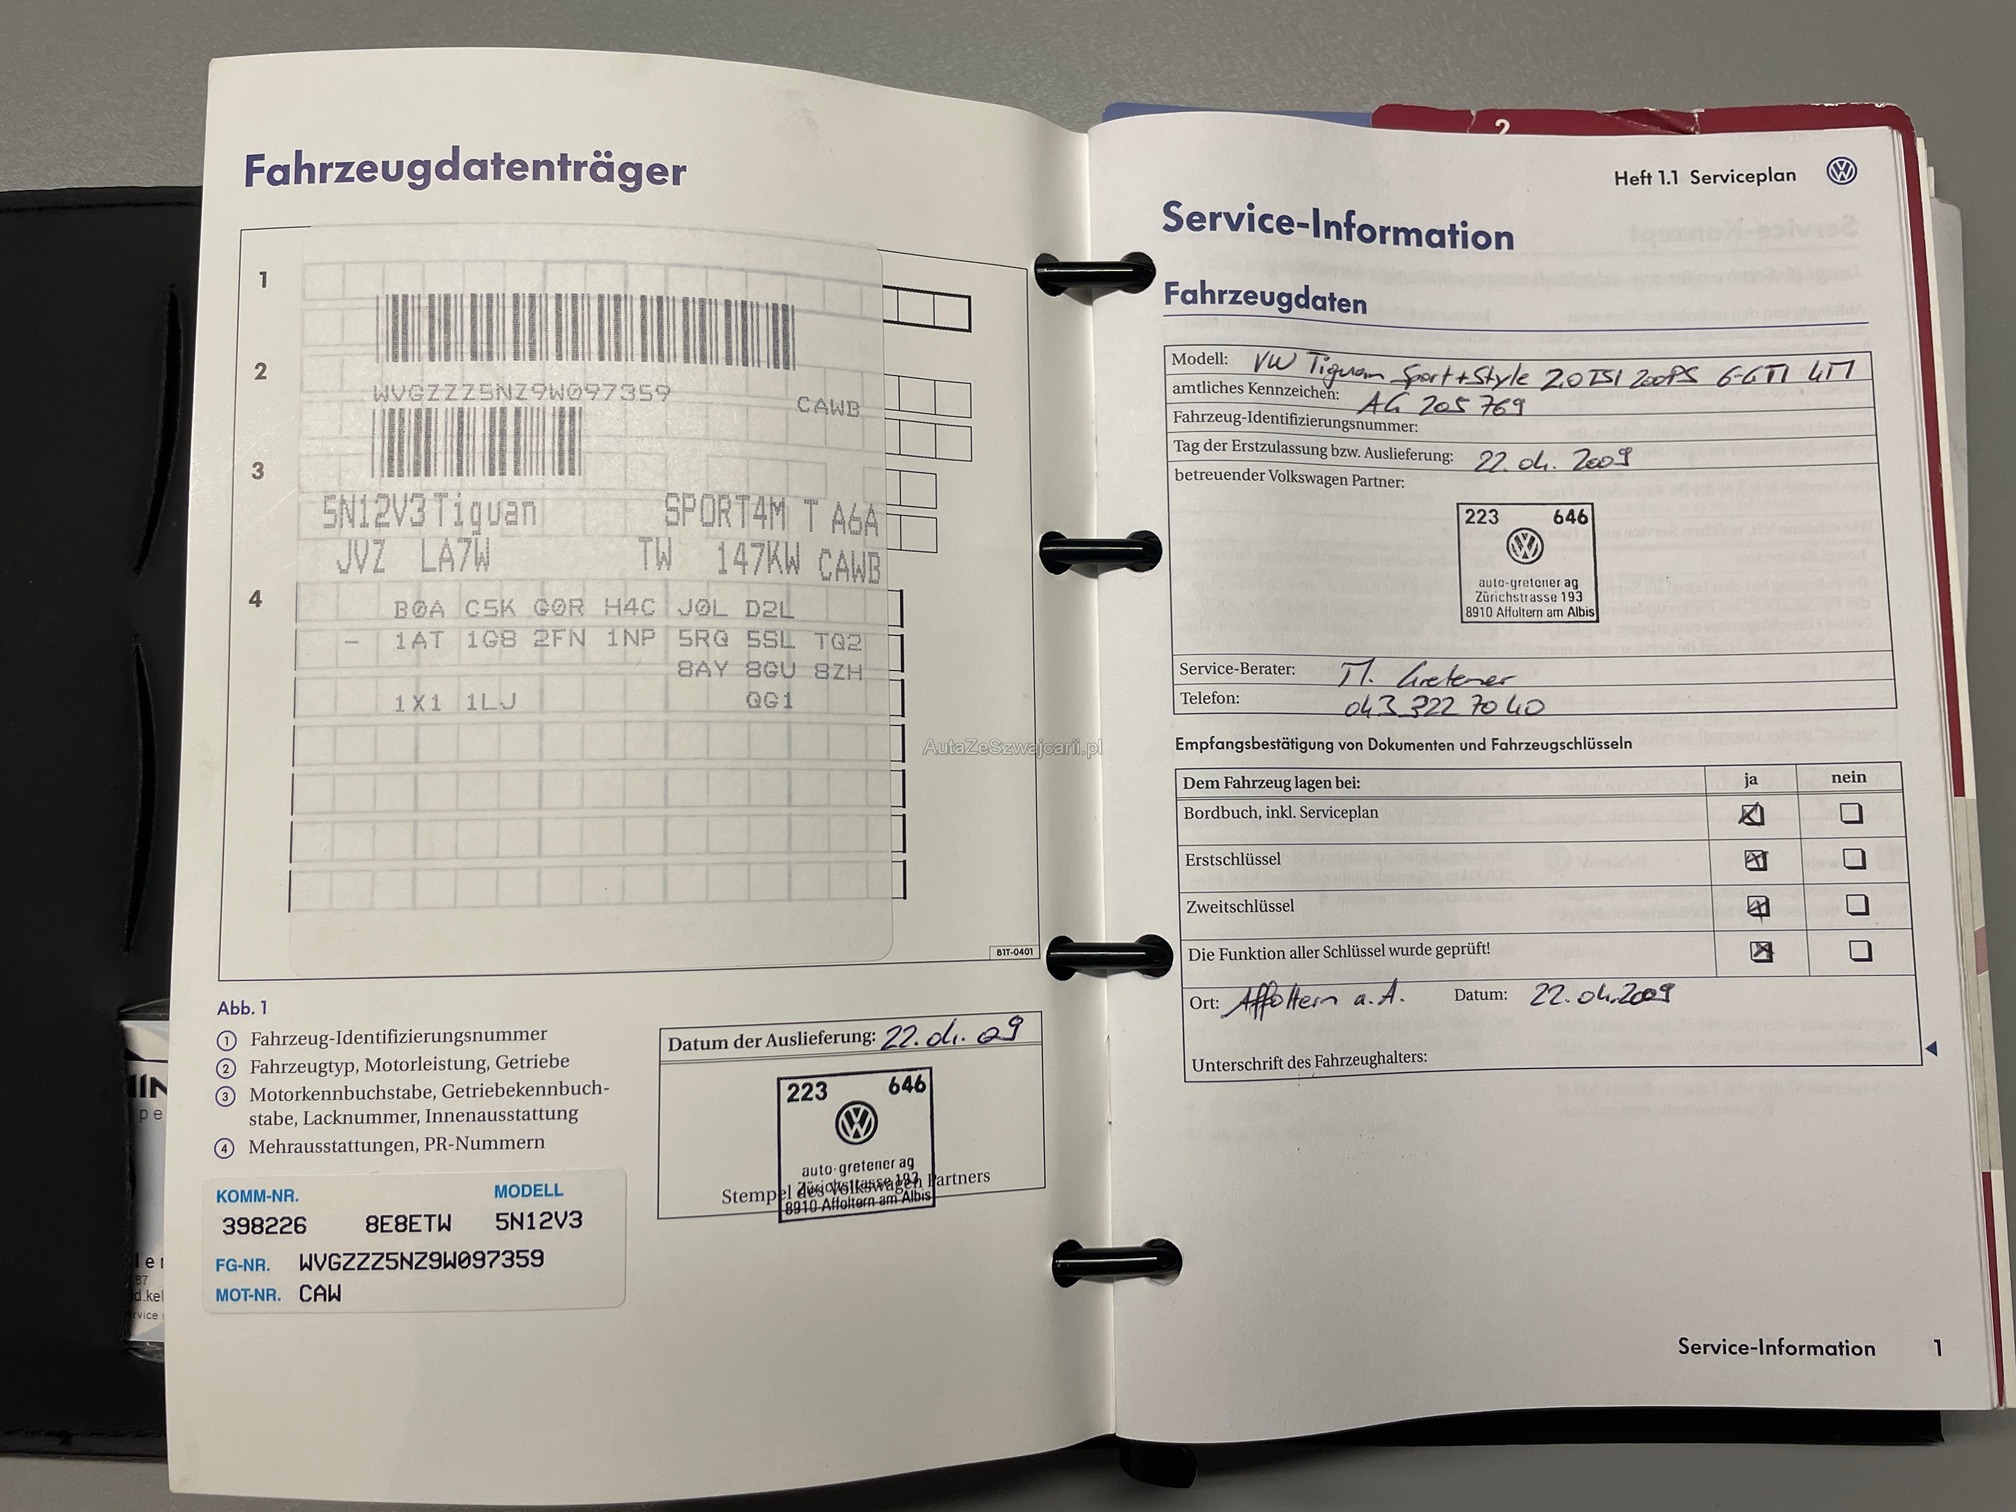 Fahrzeugdatenträger
1
2
WVGZZZ5NZ9W097359
CAWB
3
5N12V3 Tiguan SPORT4M T A6A
JVZ LA7W TW 147KW CAWB
4
B0A C5K G0R H4C J0L D2L
- 1AT 1G8 2FN 1NP 5RQ 5SL TQ2
8AY 8GU 8ZH
1X1 1LJ QG1
B1T-0401
Abb. 1
1 Fahrzeug-Identifizierungsnummer
2 Fahrzeugtyp, Motorleistung, Getriebe
3 Motorkennbuchstabe, Getriebekennbuch-
stabe, Lacknummer, Innenausstattung
4 Mehrausstattungen, PR-Nummern
Datum der Auslieferung: 22.04.09
223 646
auto-gretener ag
Zürichstrasse 193
Stempel des Volkswagen Partners
8910 Affoltern am Albis
KOMM-NR. MODELL
398226 8E8ETW 5N12V3
FG-NR. WVGZZZ5NZ9W097359
MOT-NR. CAW
2
Heft 1.1 Serviceplan
Service-Information
Fahrzeugdaten
Modell: VW Tiguan Sport+Style 2.0 TSI 200PS
amtliches Kennzeichen: AG 205 769
Fahrzeug-Identifizierungsnummer:
Tag der Erstzulassung bzw. Auslieferung: 22.04.2009
betreuender Volkswagen Partner:
223 646
auto-gretener ag
Zürichstrasse 193
8910 Affoltern am Albis
Service-Berater: M. Gretener
Telefon: 043 322 70 40
Empfangsbestätigung von Dokumenten und Fahrzeugschlüsseln
Dem Fahrzeug lagen bei: ja nein
Bordbuch, inkl. Serviceplan
Erstschlüssel
Zweitschlüssel
Die Funktion aller Schlüssel wurde geprüft!
Ort: Affoltern a.A. Datum: 22.04.2009
Unterschrift des Fahrzeughalters:
Service-Information 1
AutaZeSzwajcarii.pl